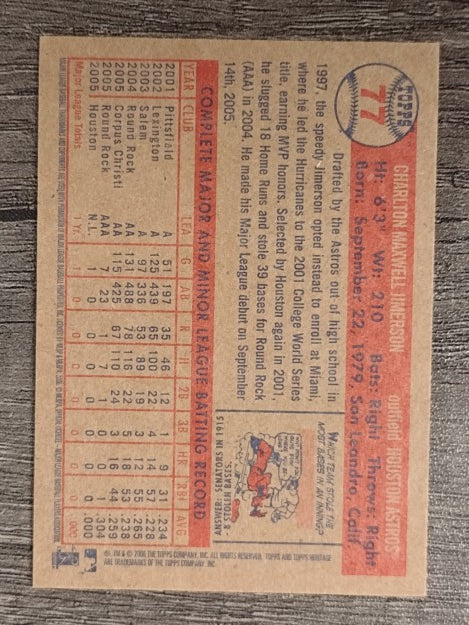 TOPPS
77
CHARLTON MAXWELL JIMERSON outfield HOUSTON ASTROS
Ht: 6'3" Wt: 210 Bats: Right Throws: Right
Born: September 22, 1979, San Leandro, Calif.
Drafted by the Astros out of high school in
1997, the speedy Jimerson opted instead to enroll at Miami,
where he led the Hurricanes to the 2001 College World Series
title, earning MVP honors. Selected by Houston again in 2001,
he slugged 18 Home Runs and stole 39 bases for Round Rock
(AAA) in 2004. He made his Major League debut on September
14th, 2005.
WHICH TEAM STOLE THE
MOST BASES IN AN INNING?
ANSWER:
SENATORS IN 1915
- 8 STOLEN BASES.
COMPLETE MAJOR AND MINOR LEAGUE BATTING RECORD
YEAR CLUB LEA G AB R H 2B 3B HR RBI AVG
2001 Pittsfield A 51 197 35 46 12 1 9 31 .234
2002 Lexington A 125 439 65 100 22 4 14 57 .228
2003 Salem A 336 19 3 12 55 .265
2004 Round Rock AA 131 488 78 116 22 5 18 .238
2005 Corpus Christi AA 115 425 67 110 24 3 16 44
2005 Round Rock AAA 7 23 1 7 2 0 0 1 .304
2005 Houston N.L. 1 0 0 0 0 0 0 0 .000
Major League Totals 1 Yr. 1 0 0 0 0 0 0 0 .000
®, TM & © 2006 THE TOPPS COMPANY, INC. ALL RIGHTS RESERVED. TOPPS AND TOPPS HERITAGE
ARE TRADEMARKS OF THE TOPPS COMPANY, INC.